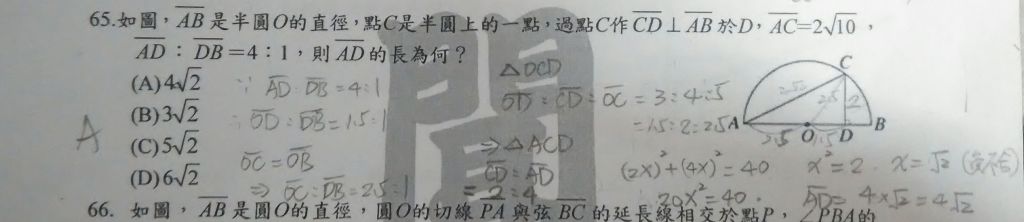 65.如圖，AB是半圓O的直徑，點C是半圓上的一點，過點C作CD⊥AB於D，AC=2√10，
AD：DB=4：1，則AD的長為何？
(A)4√2
(B)3√2
(C)5√2
(D)6√2
A
∵ AD:DB=4:1
∴ OD:DB=1.5:1
OC=OB
⇒ OC:DB=2.5:1
△OCD
OD:CD:OC=3:4:5
=1.5:2:2.5
⇒△ACD
CD:AD
=2:4
(2x)²+(4x)²=40
20x²=40.
x²=2. x=√2 (負不合)
AD=4×√2=4√2
C
2√10
2.5
2
A
2.5
O
1.5
D
B
聞
66. 如圖，AB是圓O的直徑，圓O的切線PA與弦BC的延長線相交於點P，∠PBA的